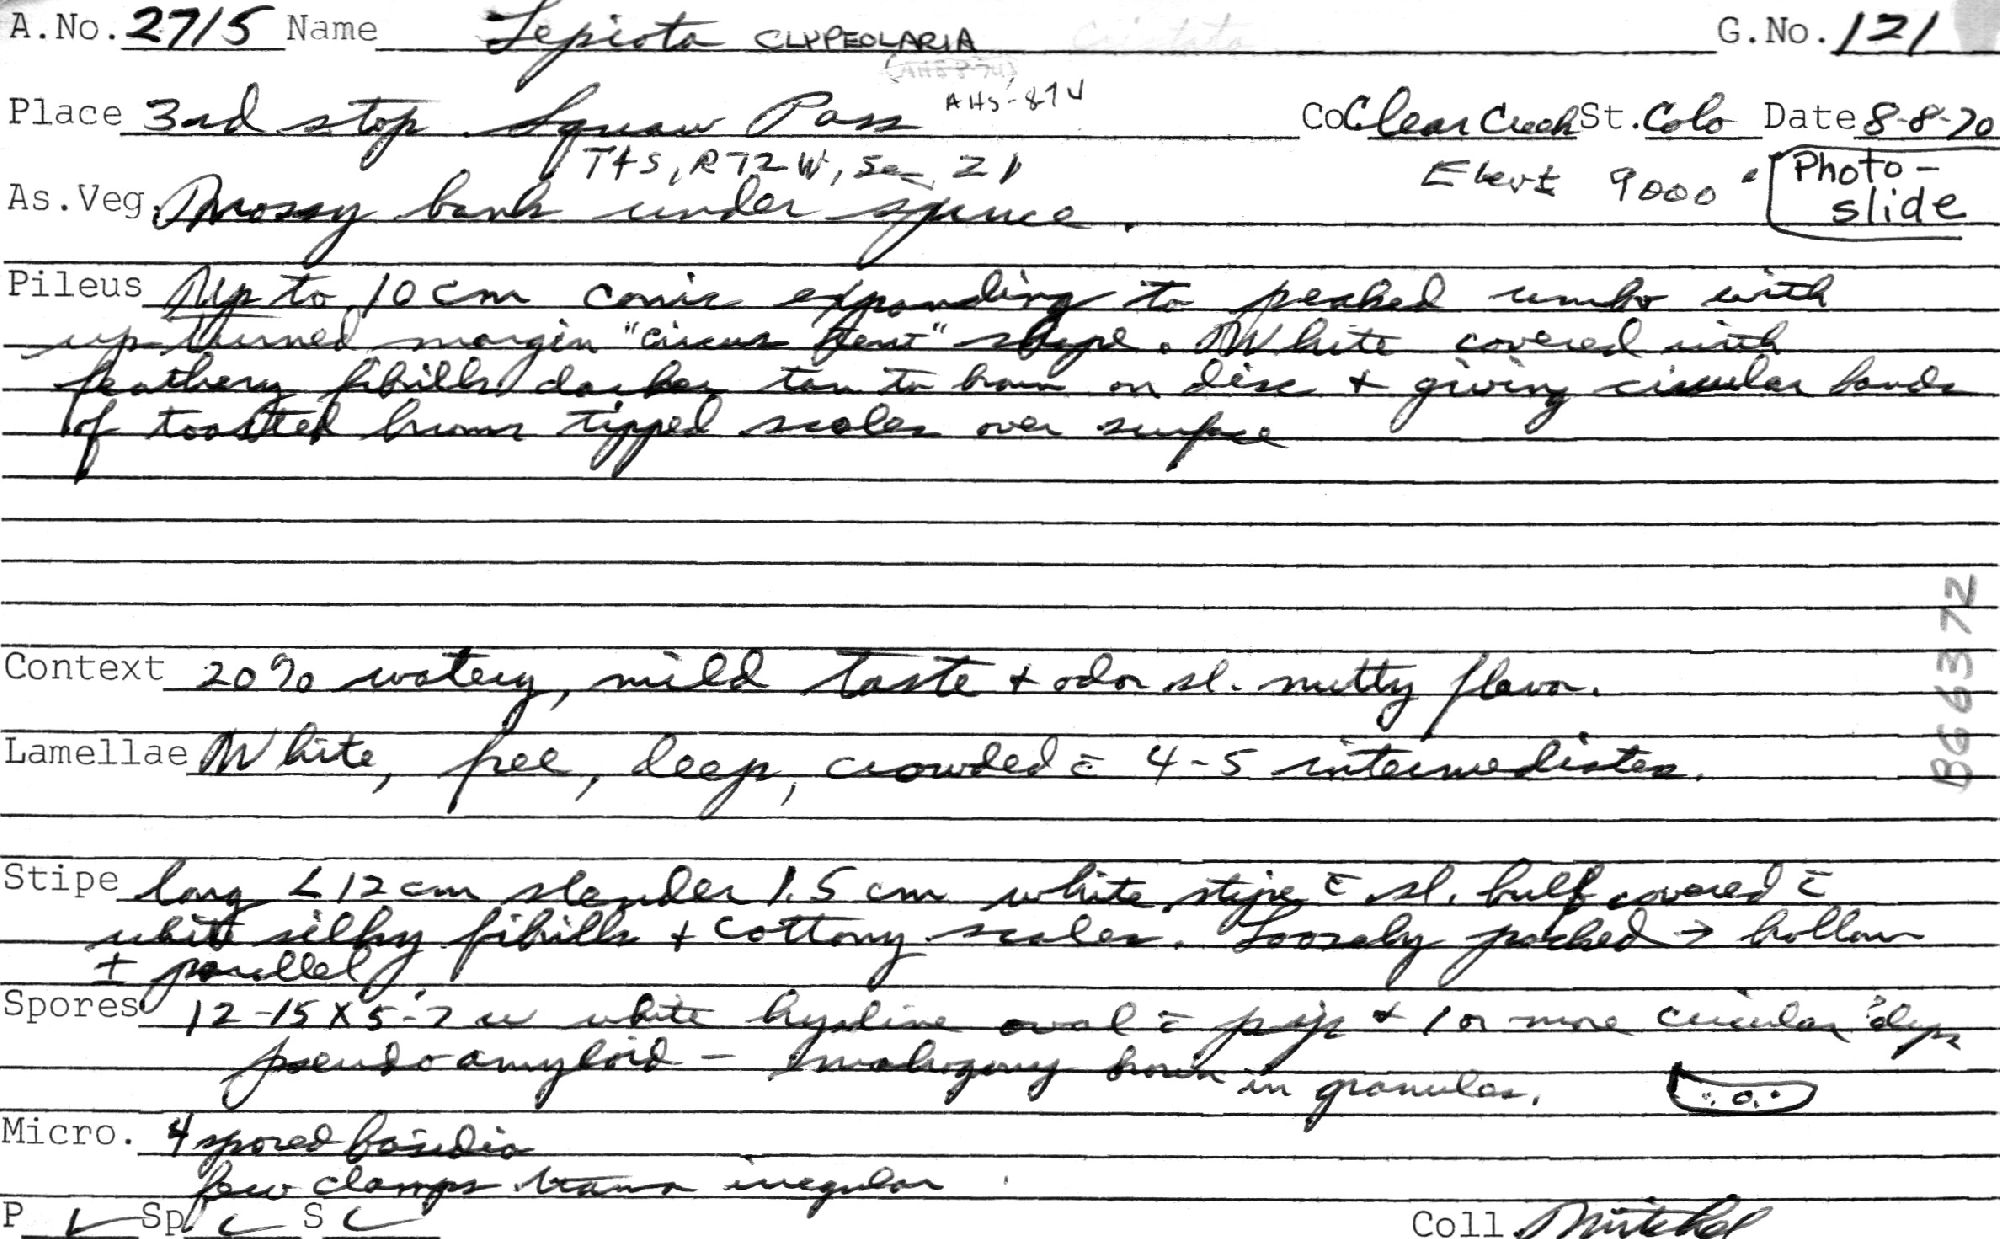 A.No. 2715 Name Lepiota CLYPEOLARIA Cristata G.No. 121
AHS-874
Place 3rd stop Squaw Pass Co Clear Creek St. Colo Date 8-8-70
T4S, R72W, Sec. 21 Elev ± 9000 Photo-
As.Veg. Mossy bank under spruce. slide
Pileus Up to 10 cm conic expanding to peaked umbo with
up-turned margin "circus tent" shape. White covered with
feathery fibills darker tan to brown on disc + giving circular bands
of toasted brown tipped scales over surface
Context 20% watery, mild taste + odor sl. nutty flavor.
B66372
Lamellae White, free, deep, crowded c̄ 4-5 intermediates.
Stipe long < 12 cm slender 1.5 cm white stipe c̄ sl. bulb covered c̄
white silky fibills + cottony scales. Loosely packed → hollow
± parallel
Spores 12-15 x 5-7 u white hyaline oval c̄ pip + 1 or more circular
pseudoamyloid - mahogany brown in granules.
Micro. 4 spored basidia
few clamps trama irregular
P Sp S Coll. Mitchel